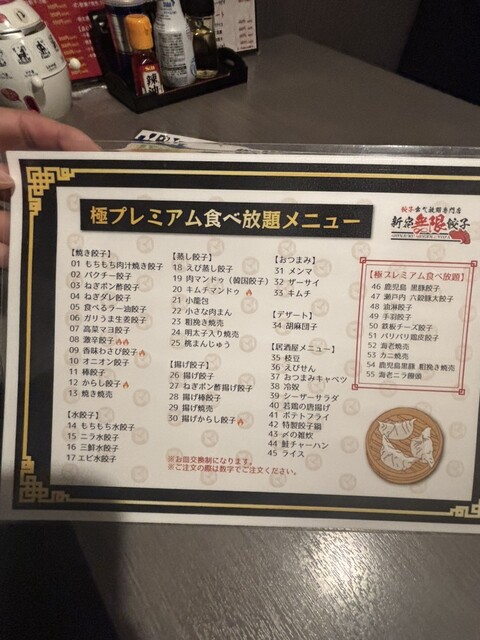 極プレミアム食べ放題メニュー
餃子食べ放題専門店
新宿無限餃子
【焼き餃子】
01 もちもち肉汁焼き餃子
02 パクチー餃子
03 ねぎポン酢餃子
04 ねぎダレ餃子
05 食べるラー油餃子
06 ガリうま生姜餃子
07 高菜マヨ餃子
08 激辛餃子
09 香味わさび餃子
10 オニオン餃子
11 棒餃子
12 からし餃子
13 焼き焼売
【水餃子】
14 もちもち水餃子
15 ニラ水餃子
16 三鮮水餃子
17 エビ水餃子
【蒸し餃子】
18 えび蒸し餃子
19 肉マンドゥ（韓国餃子）
20 キムチマンドゥ
21 小籠包
22 小さな肉まん
23 粗挽き焼売
24 明太子入り焼売
25 桃まんじゅう
【揚げ餃子】
26 揚げ餃子
27 ねぎポン酢揚げ餃子
28 揚げ棒餃子
29 揚げ焼売
30 揚げからし餃子
【おつまみ】
31 メンマ
32 ザーサイ
33 キムチ
【デザート】
34 胡麻団子
【居酒屋メニュー】
35 枝豆
36 えびせん
37 おつまみキャベツ
38 冷奴
39 シーザーサラダ
40 若鶏の唐揚げ
41 ポテトフライ
42 特製餃子鍋
43 〆の雑炊
44 鮭チャーハン
45 ライス
【極プレミアム食べ放題】
46 鹿児島 黒豚餃子
47 瀬戸内 六穀豚大餃子
48 油淋餃子
49 手羽餃子
50 鉄板チーズ餃子
51 パリパリ鶏皮餃子
52 海老焼売
53 カニ焼売
54 鹿児島黒豚 粗挽き焼売
55 海老ニラ饅頭
※お皿交換制になります。
※ご注文の際は数字でご注文ください。